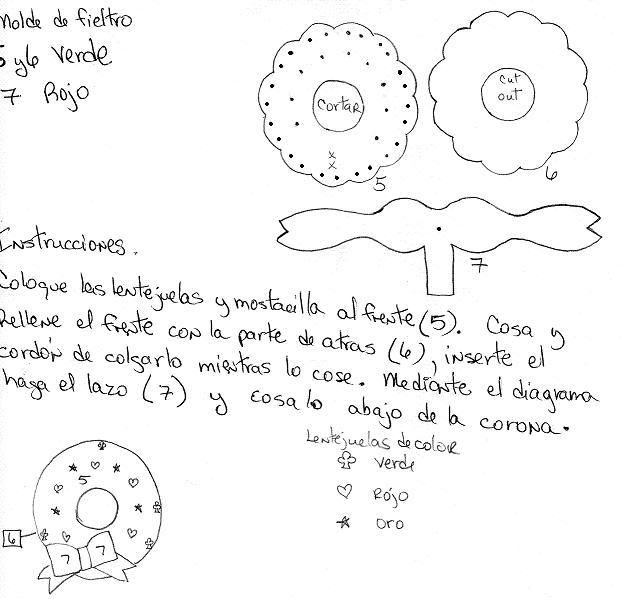 Molde de fieltro
5 y 6 Verde
7 Rojo
Cortar
x
x
5
cut
out
6
7
Instrucciones.
Coloque las lentejuelas y mostacilla al frente (5). Cosa y
Rellene el frente con la parte de atras (6), inserte el
cordón de colgarlo mientras lo cose. Mediante el diagrama
haga el lazo (7) y cosalo abajo de la corona.
Lentejuelas de color
verde
Rojo
oro
5
6
7 7